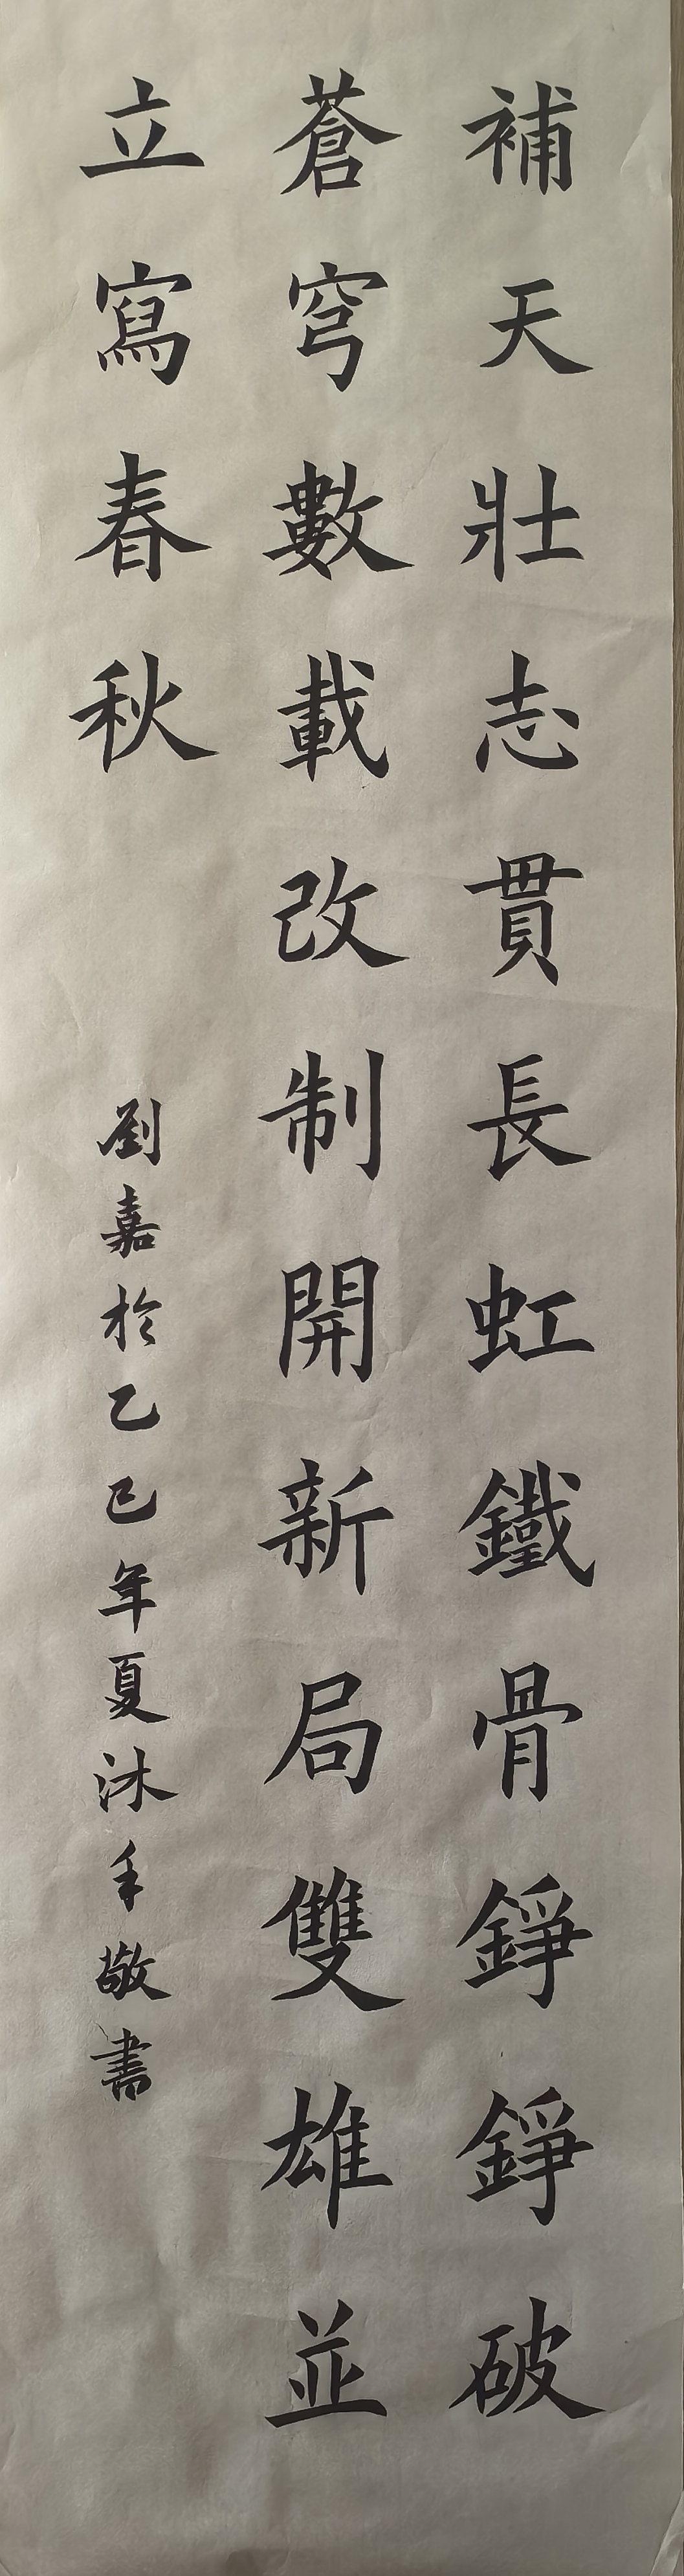 補天壯志貫長虹鐵骨錚錚破
蒼穹數載改制開新局雙雄並
立寫春秋
劉嘉於乙巳年夏沐手敬書